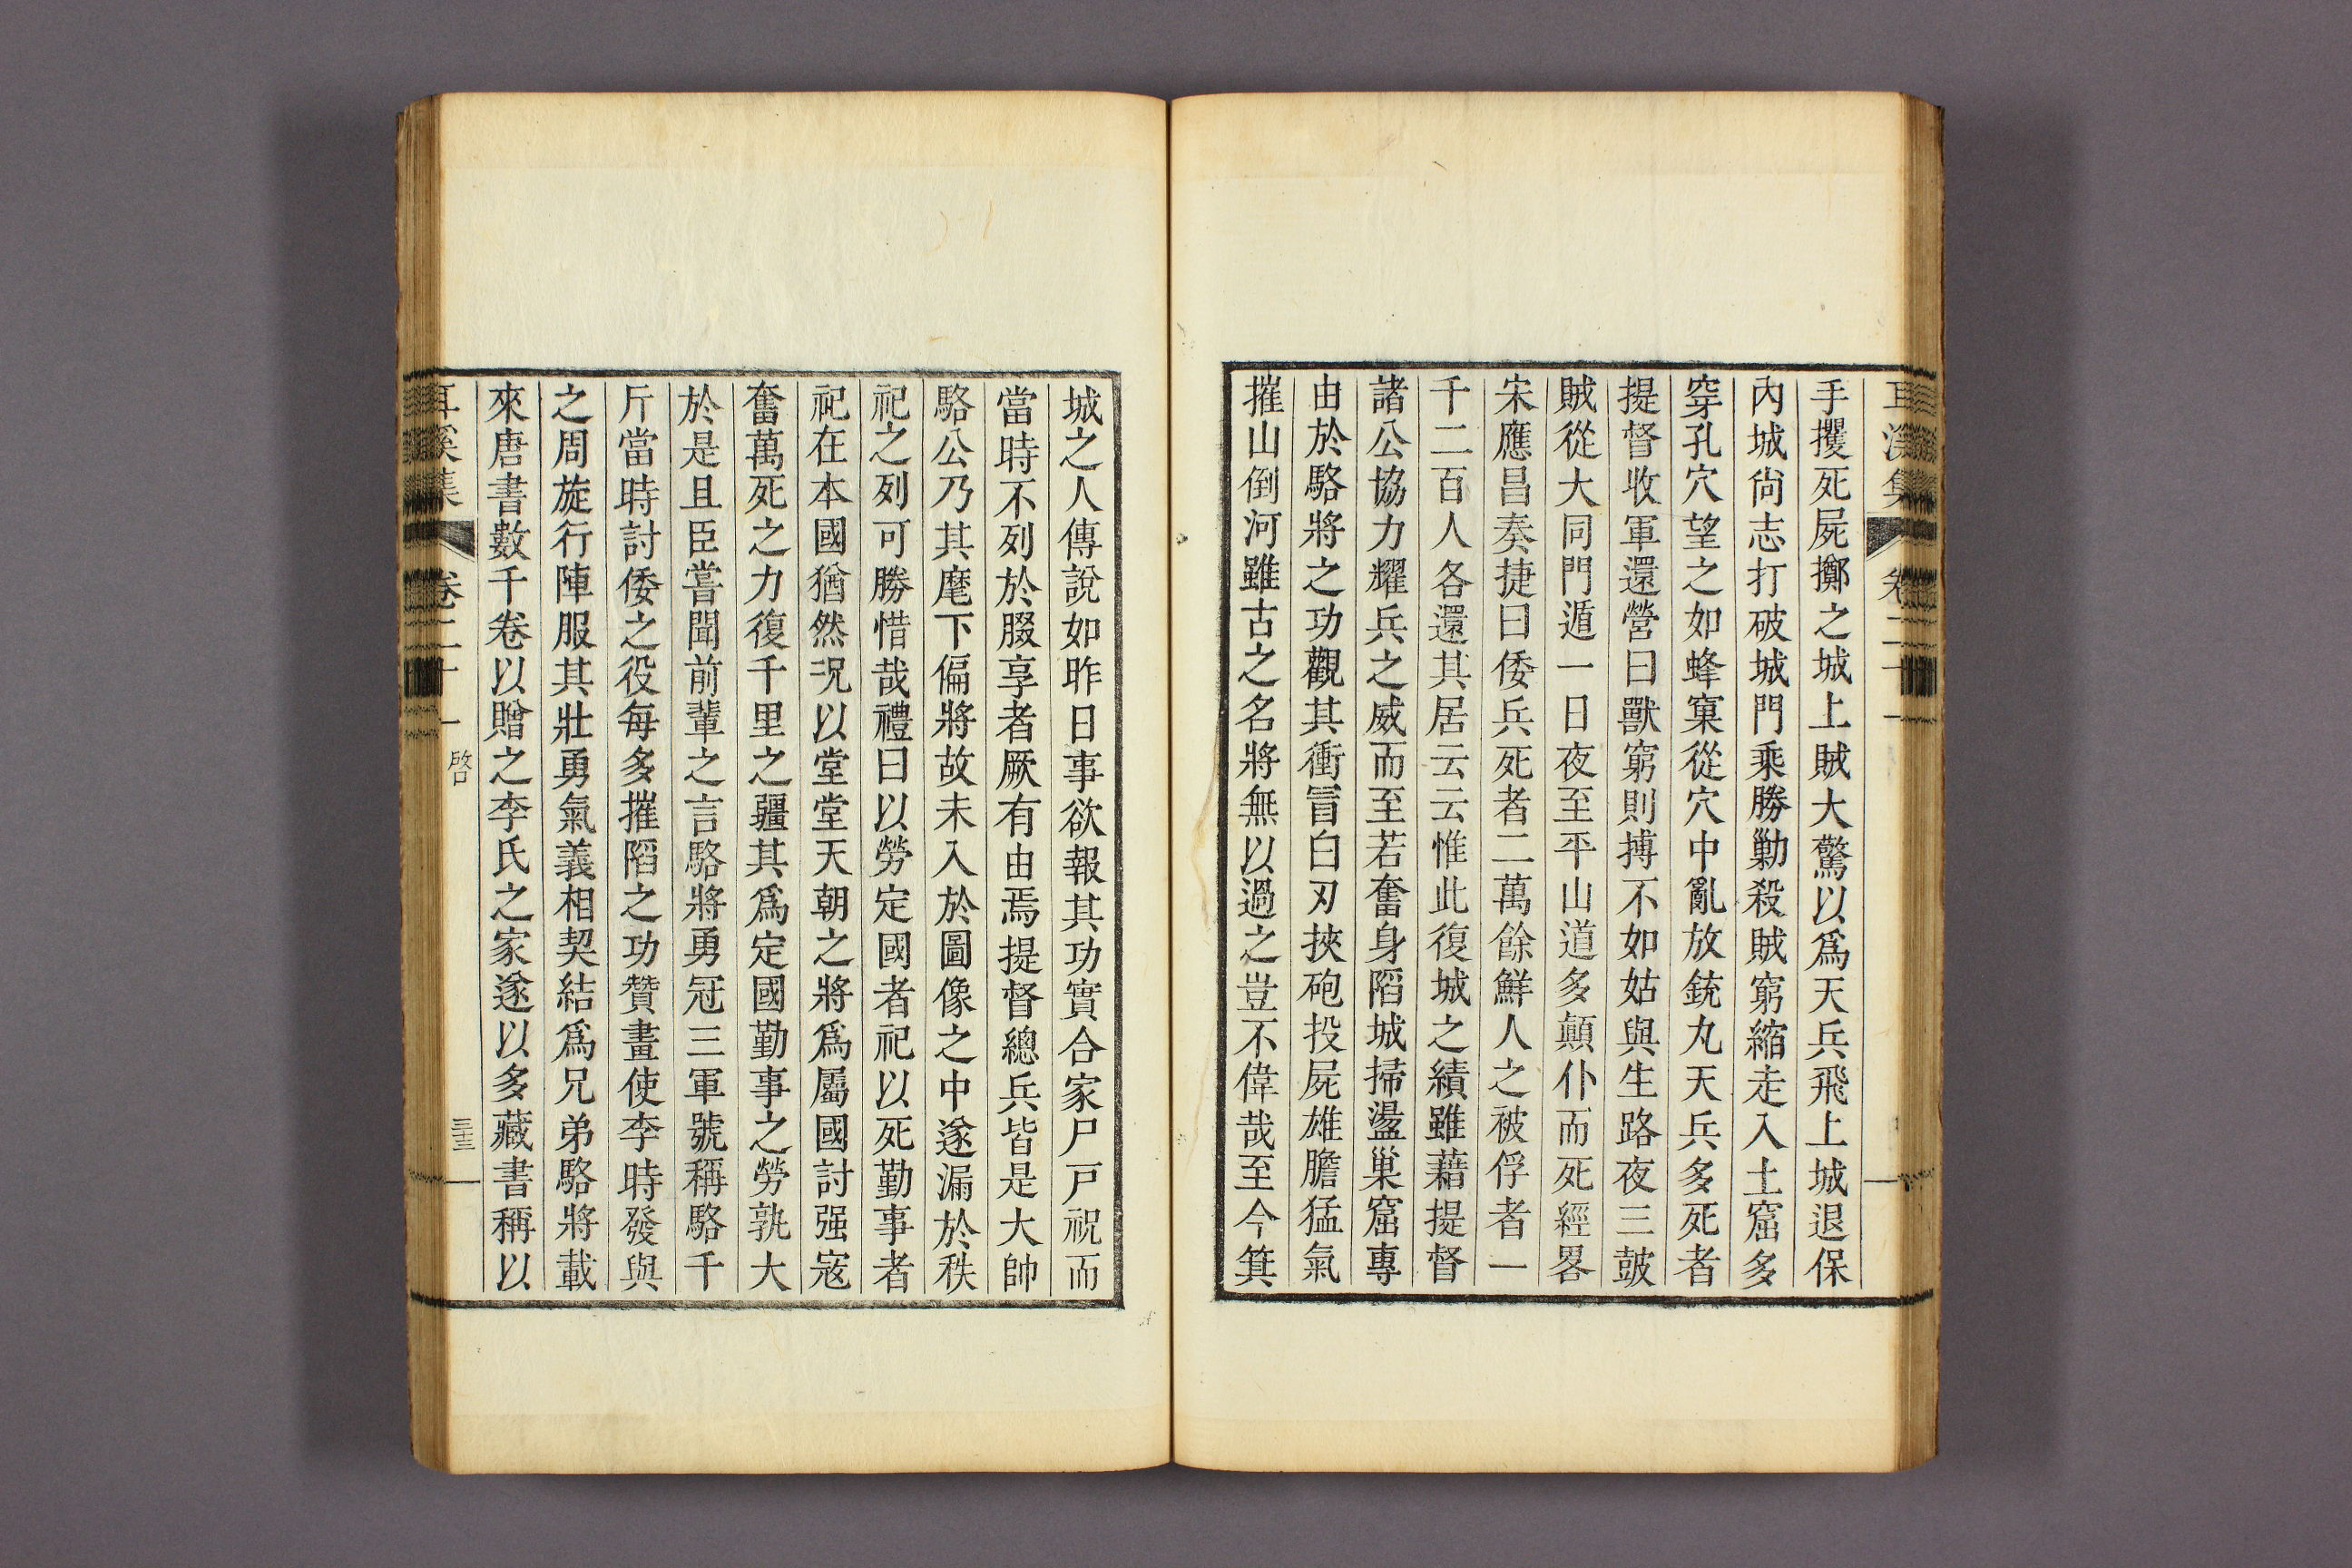 耳溪集 卷二十
手攫死屍擲之城上賊大驚以爲天兵飛上城退保
內城尙志打破城門乘勝勦殺賊窮縮走入土窟多
穿孔穴望之如蜂窠從穴中亂放銃丸天兵多死者
提督收軍還營曰獸窮則搏不如姑與生路夜三皷
賊從大同門遁一日夜至平山道多顚仆而死經畧
宋應昌奏捷曰倭兵死者二萬餘鮮人之被俘者一
千二百人各還其居云云惟此復城之績雖藉提督
諸公協力耀兵之威而至若奮身陷城掃盪巢窟專
由於駱將之功觀其衝冒白刃挾砲投屍雄膽猛氣
摧山倒河雖古之名將無以過之豈不偉哉至今箕
城之人傳說如昨日事欲報其功實合家尸戶祝而
當時不列於腏享者厥有由焉提督總兵皆是大帥
駱公乃其麾下偏將故未入於圖像之中遂漏於秩
祀之列可勝惜哉禮曰以勞定國者祀以死勤事者
祀在本國猶然况以堂堂天朝之將爲屬國討强寇
奮萬死之力復千里之疆其爲定國勤事之勞孰大
於是且臣嘗聞前輩之言駱將勇冠三軍號稱駱千
斤當時討倭之役每多摧陷之功贊畫使李時發與
之周旋行陣服其壯勇氣義相契結爲兄弟駱將載
來唐書數千卷以贈之李氏之家遂以多藏書稱以
耳溪集 卷二十 啓 三十三